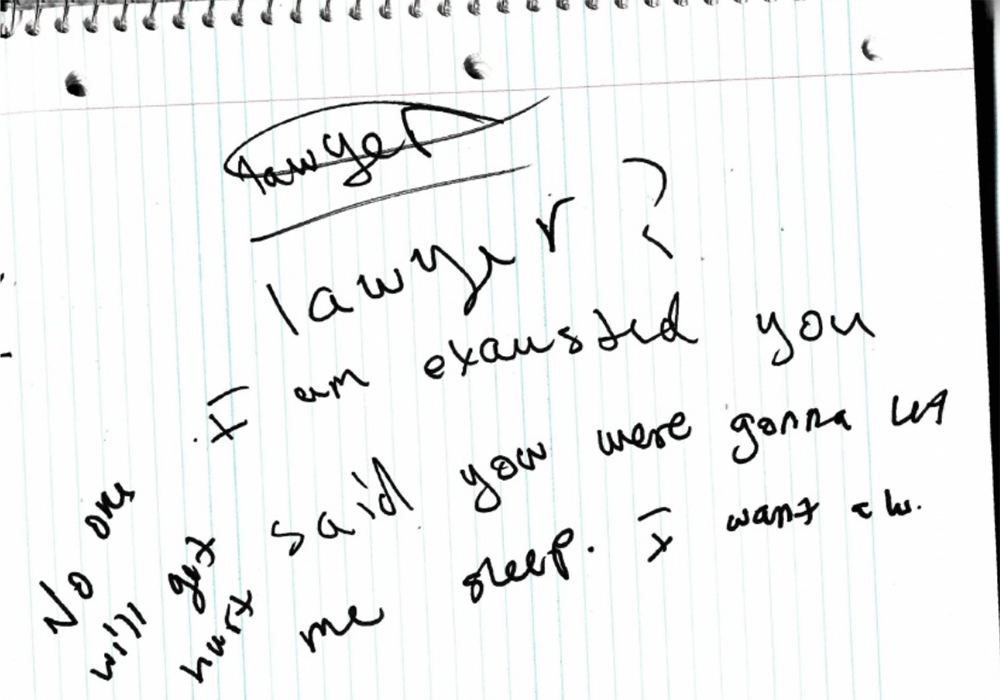 lawyer
lawyer?
I am exausted you
said you were gonna let
me sleep. I want a lw.
No one
will get
hurt